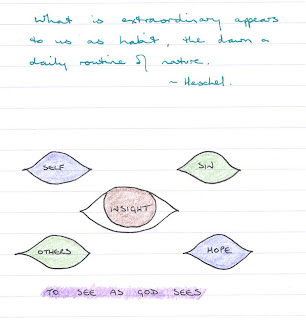 What is extraordinary appears
to us as habit, the dawn a
daily routine of nature.
~ Heschel.
SELF
SIN
INSIGHT
OTHERS
HOPE
TO SEE AS GOD SEES